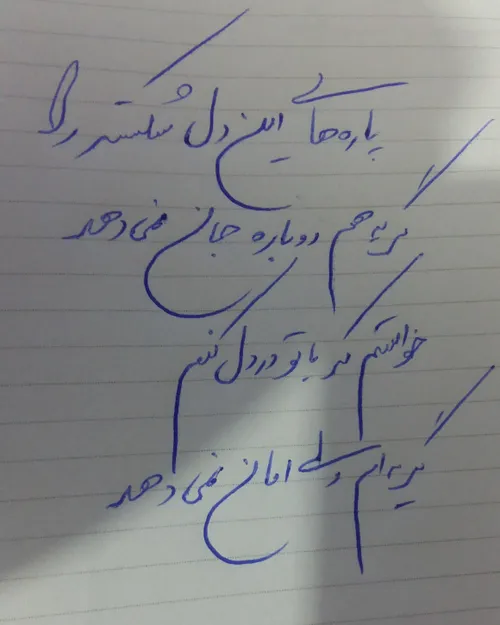 پاره‌های این دل شکسته را
گریه هم دوباره جان نمی‌دهد
خواستم که با تو درد دل کنم
گریه‌ام ولی امان نمی‌دهد